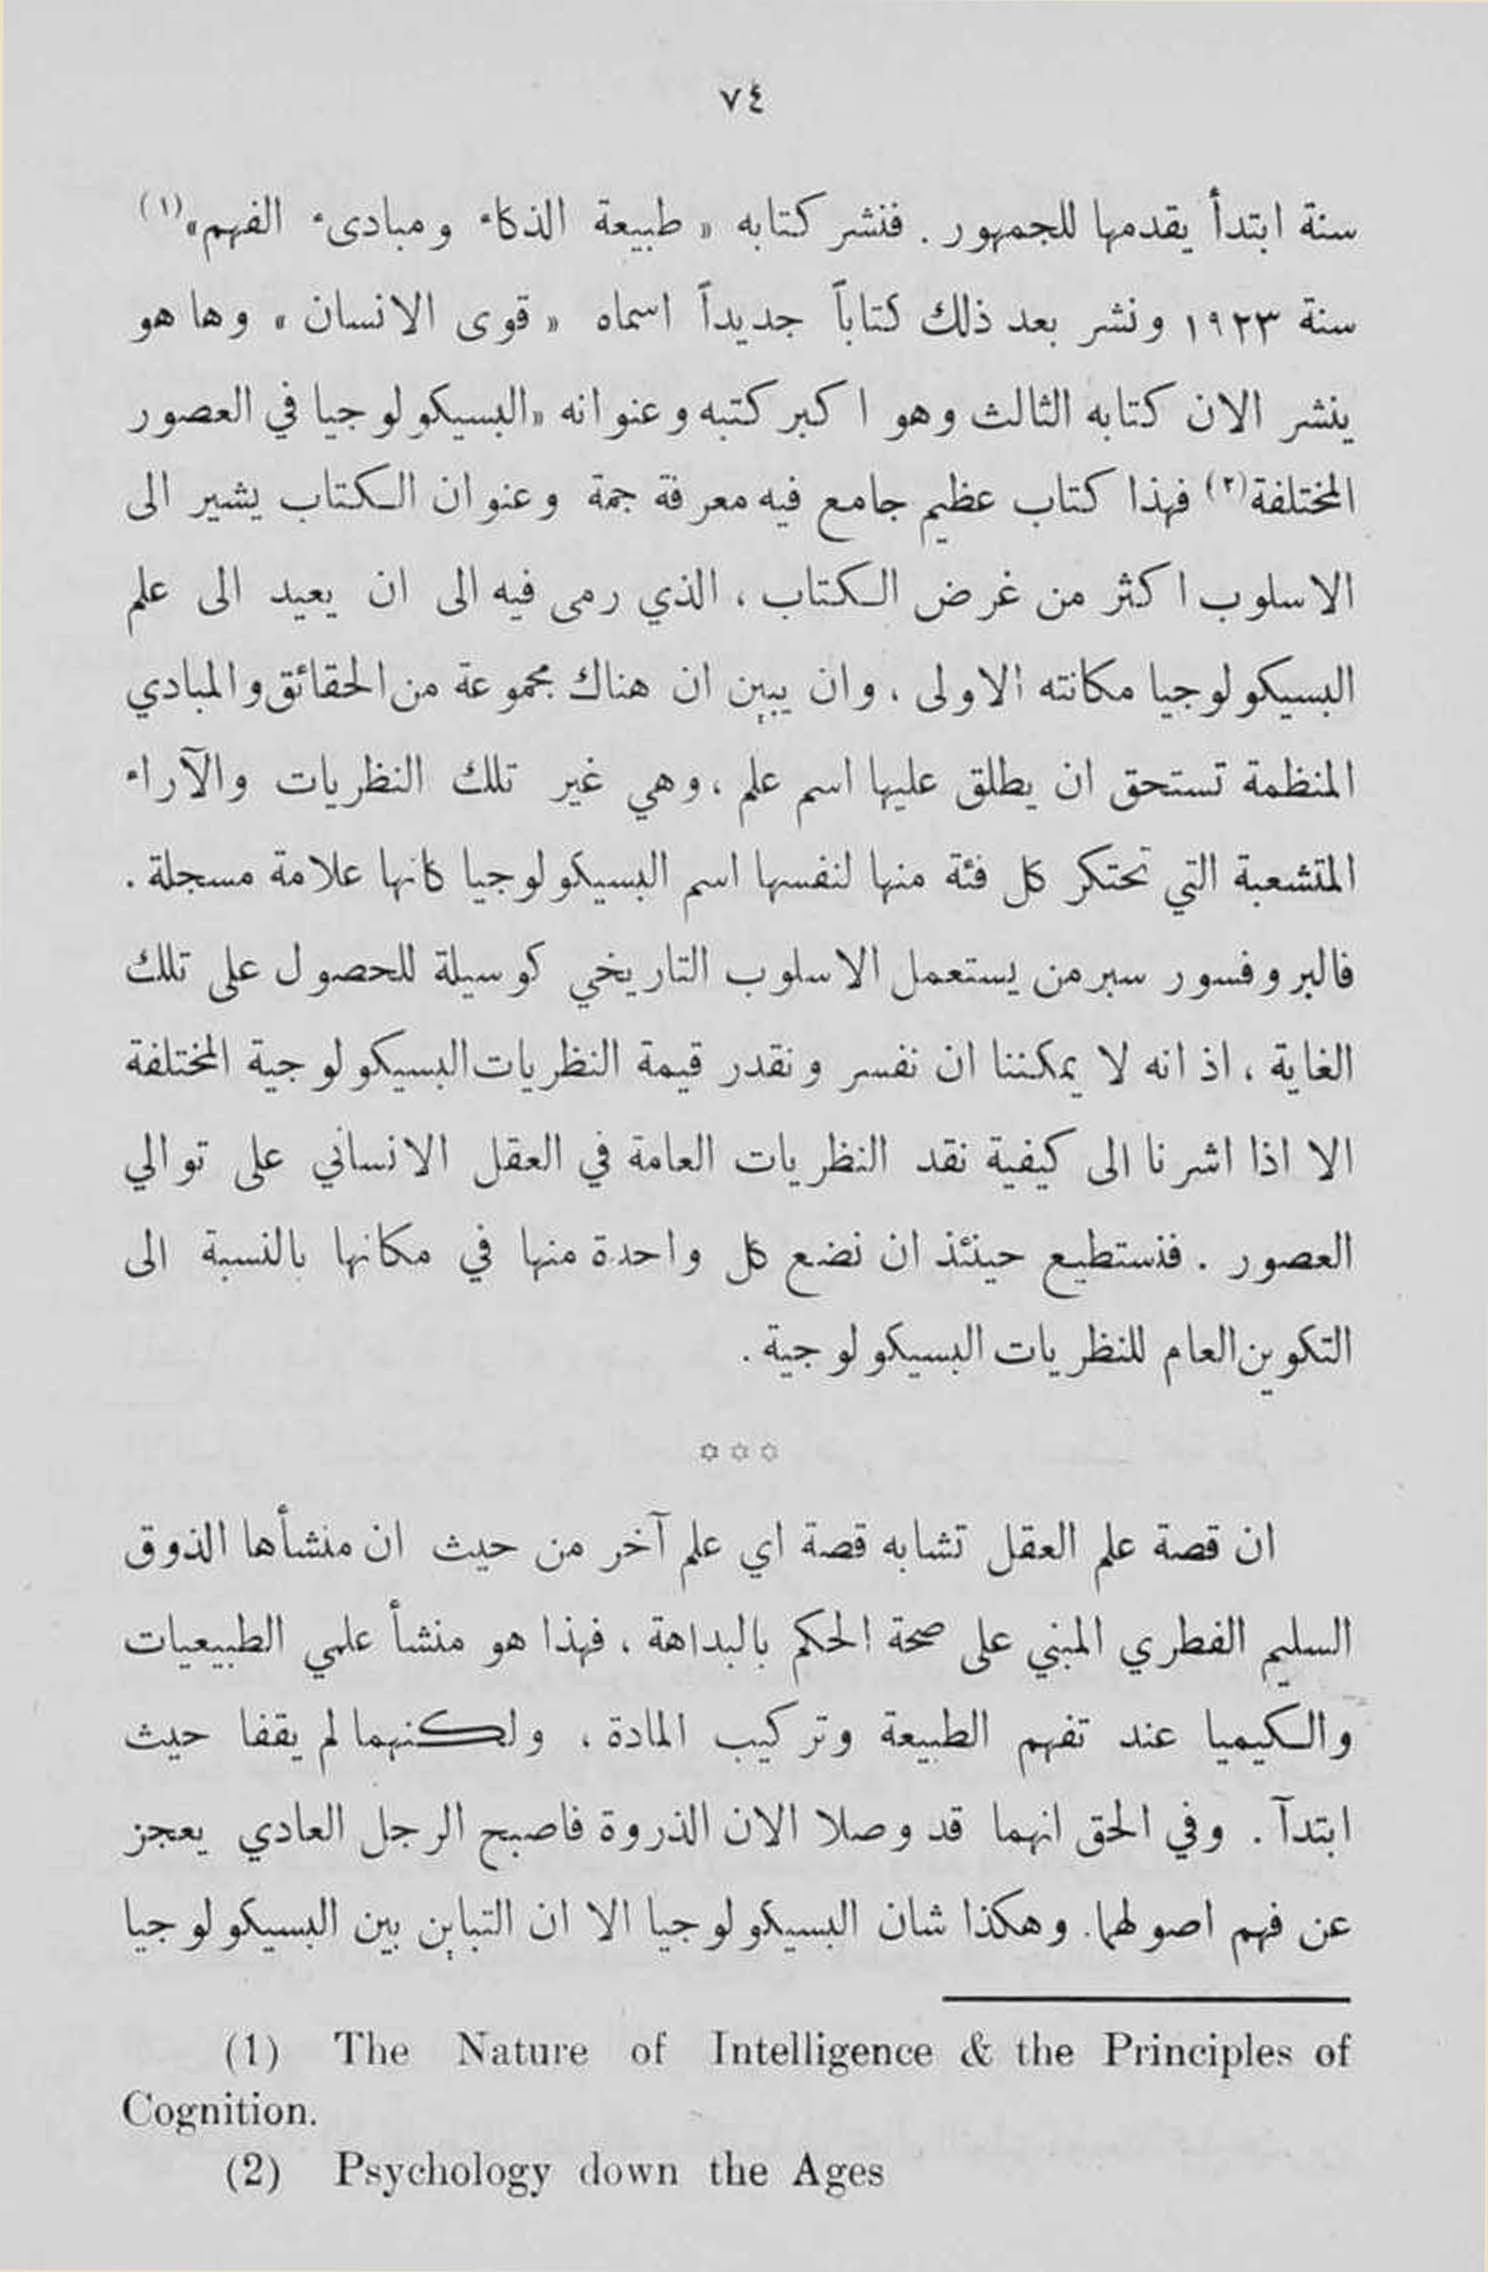 ٧٤
سنة ابتدأ يقدمها للجمهور . فنشر كتابه « طبيعة الذكاء ومبادىء الفهم»(١)
سنة ١٩٢٣ ونشر بعد ذلك كتاباً جديداً اسماه « قوى الانسان » وها هو
ينشر الان كتابه الثالث وهو اكبر كتبه وعنوانه «البسيكولوجيا في العصور
المختلفة(٢) فهذا كتاب عظيم جامع فيه معرفة جمة وعنوان الكتاب يشير الى
الاسلوب اكثر من غرض الكتاب ، الذي رمى فيه الى ان يعيد الى علم
البسيكولوجيا مكانته الاولى ، وان يبين ان هناك مجموعة من الحقائق والمبادي
المنظمة تستحق ان يطلق عليها اسم علم ، وهي غير تلك النظريات والآراء
المتشعبة التي تحتكر كل فئة منها لنفسها اسم البسيكولوجيا كانها علامة مسجلة .
فالبروفسور سبرمن يستعمل الاسلوب التاريخي كوسيلة للحصول على تلك
الغاية ، اذ انه لا يمكننا ان نفسر ونقدر قيمة النظريات البسيكولوجية المختلفة
الا اذا اشرنا الى كيفية نقد النظريات العامة في العقل الانساني على توالي
العصور . فنستطيع حينئذ ان نضع كل واحدة منها في مكانها بالنسبة الى
التكوين العام للنظريات البسيكولوجية .
☆ ☆ ☆
ان قصة علم العقل تشابه قصة اي علم آخر من حيث ان منشأها الذوق
السليم الفطري المبني على صحة الحكم بالبداهة ، فهذا هو منشأ علمي الطبيعيات
والكيميا عند تفهم الطبيعة وتركيب المادة ، ولكنهما لم يقفا حيث
ابتدآ . وفي الحق انهما قد وصلا الان الذروة فاصبح الرجل العادي يعجز
عن فهم اصولهما. وهكذا شان البسيكولوجيا الا ان التباين بين البسيكولوجيا
(1) The Nature of Intelligence & the Principles of
Cognition.
(2) Psychology down the Ages